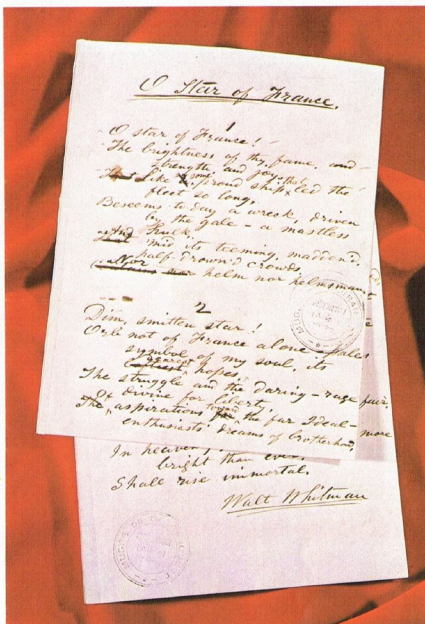 O Star of France.
1
O star of France!
The brightness of thy fame, and
strength and joy,
like some proud ship that led the
fleet so long,
Beseems to-day a wreck, driven
by the gale – a mastless
hulk,
And 'mid its teeming, madden'd,
half-drown'd crowds,
Nor helm nor helmsman
2
Dim, smitten star!
Orb not of France alone – pale
symbol of my soul, its
dearest hopes,
The struggle and the daring – rage
divine for liberty,
The aspirations toward the far Ideal –
enthusiasts' dreams of brotherhood,
In heaven
bright than ever,
Shall rise immortal.
Walt Whitman